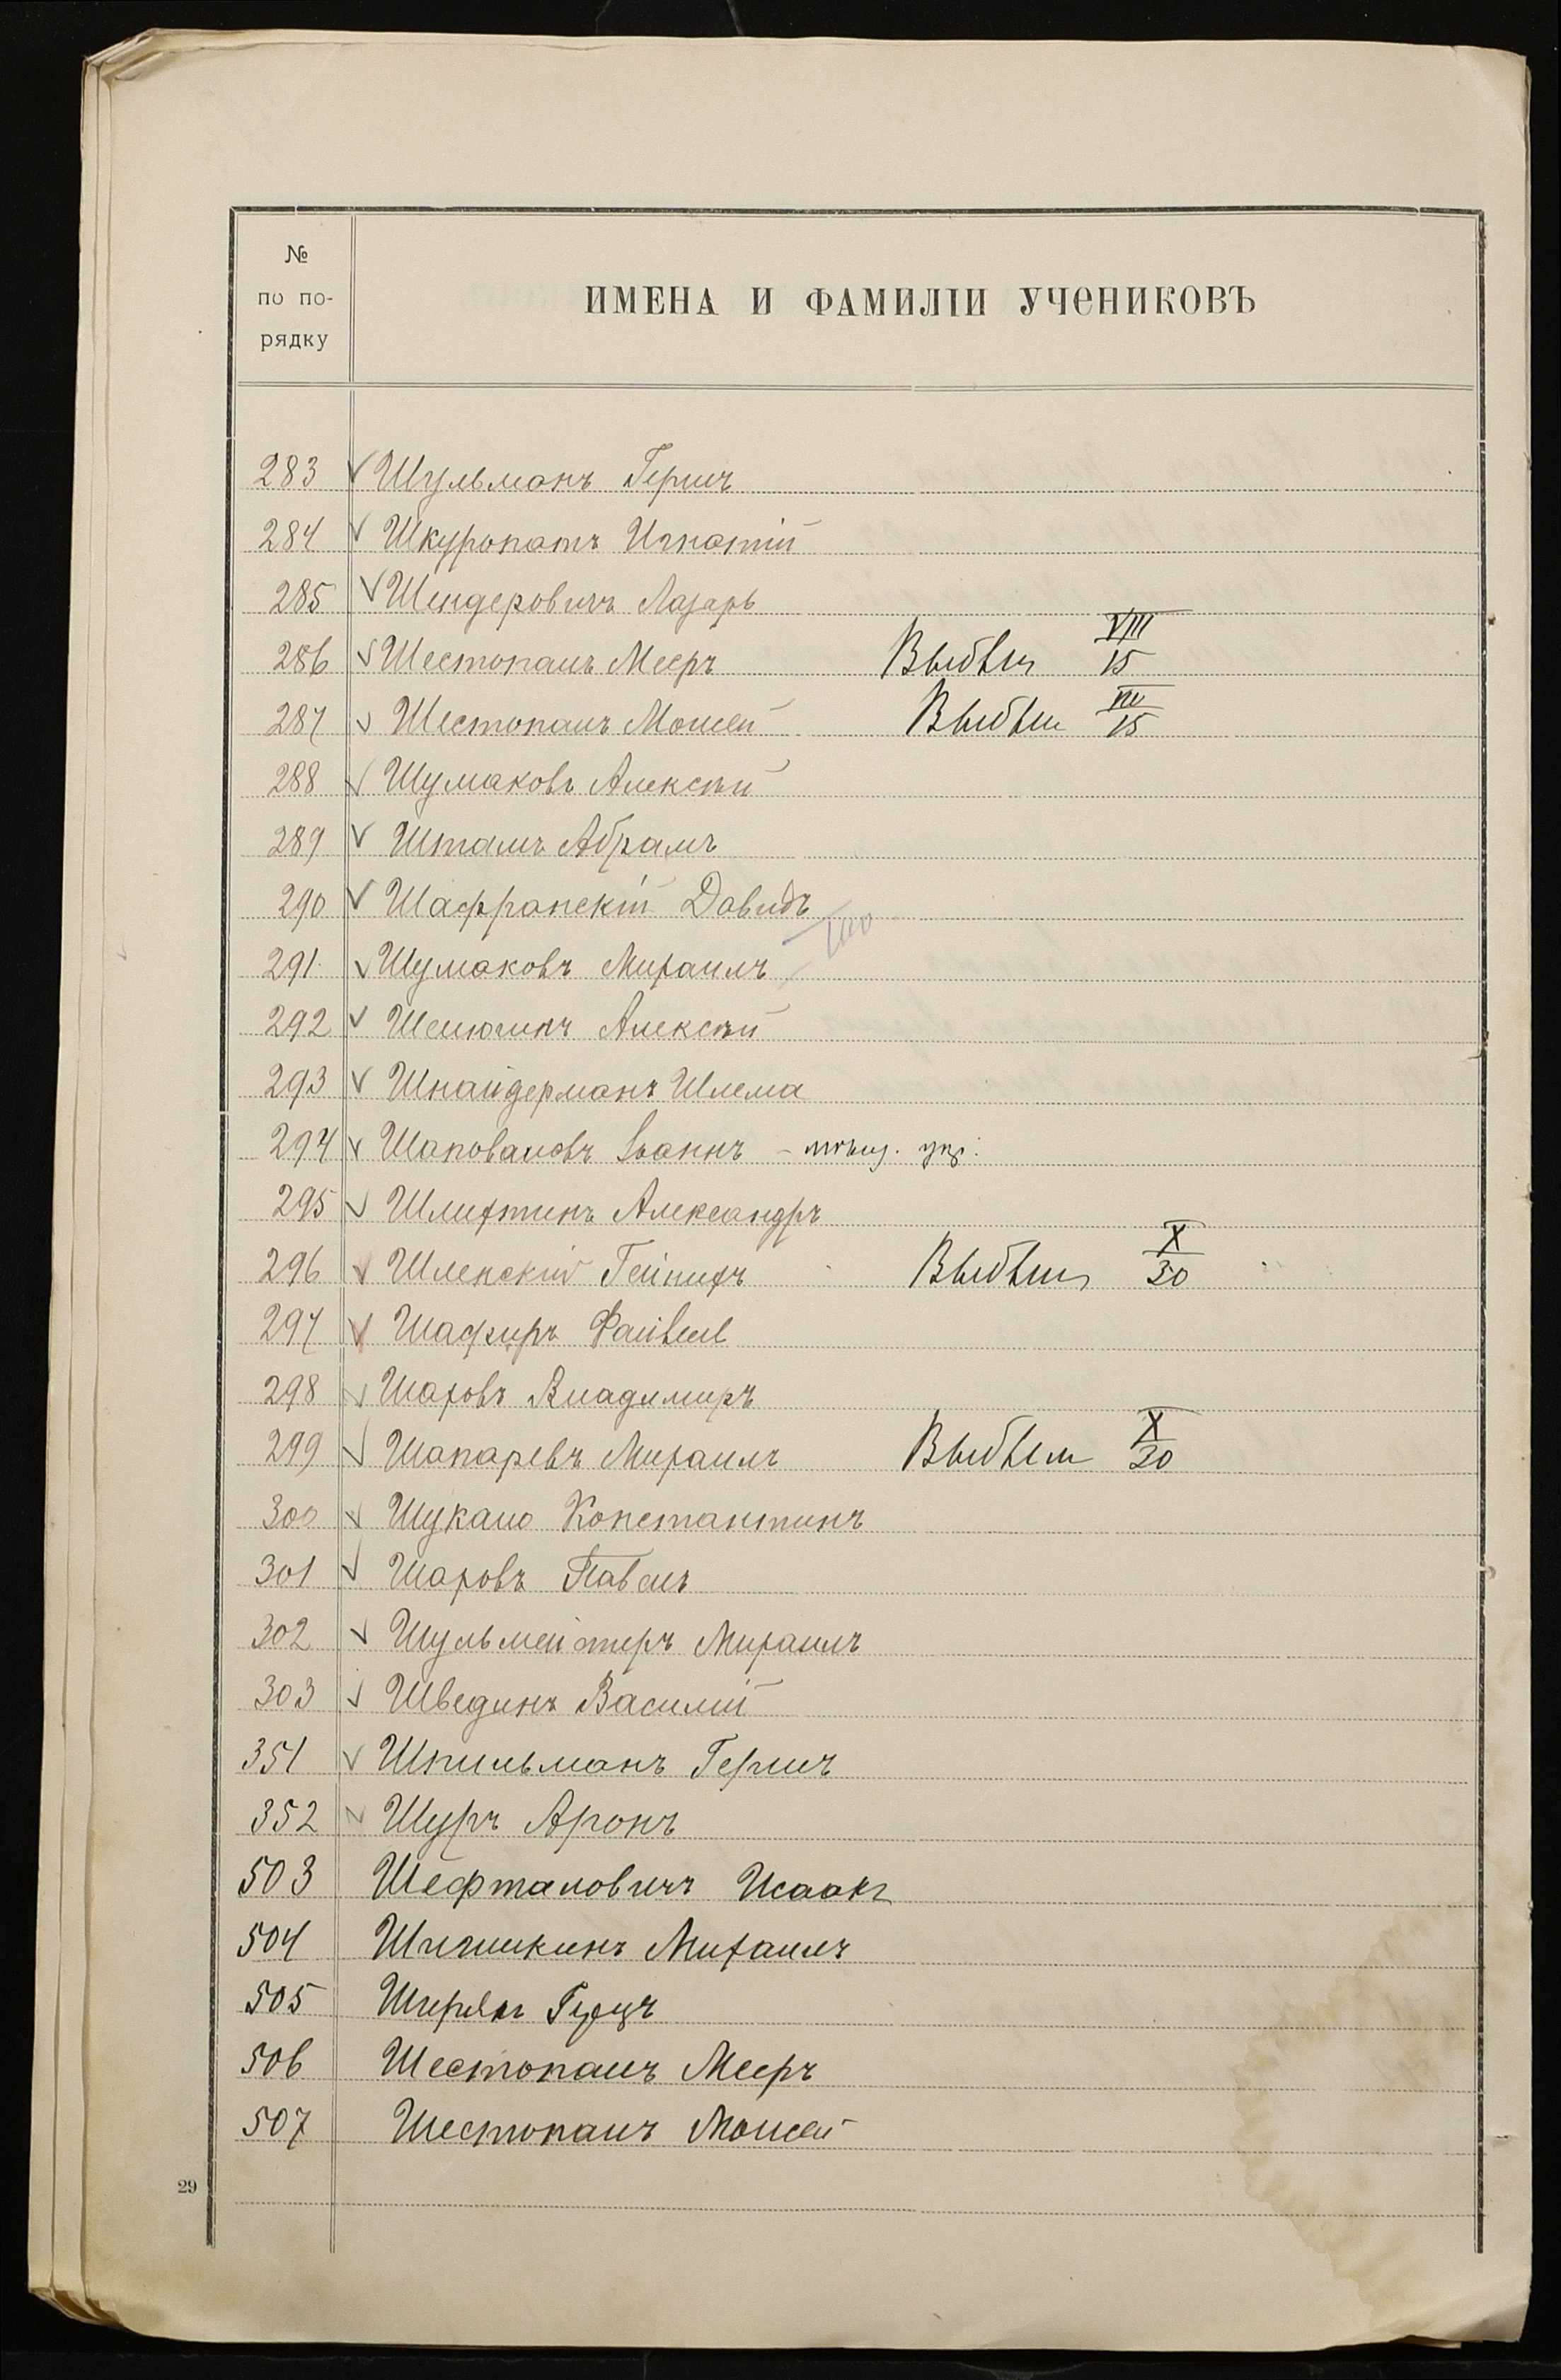 №
по по-
рядку
ИМЕНА И ФАМИЛIИ УЧЕНИКОВЪ
283 Шульманъ Гершъ
284 Шкуропатъ Игнатій
285 Шендеровичъ Лазарь
286 Шестопалъ Мееръ Выбылъ VIII/15
287 Шестопалъ Моисей Выбылъ VIII/15
288 Шумаковъ Алексѣй
289 Шталь Абрамъ
290 Шафранскій Давидъ
291 Шумаковъ Михаилъ
292 Шелюгинъ Алексѣй
293 Шнайдерманъ Шлема
294 Шаповаловъ Іоаннъ
295 Шлифтинъ Александръ
296 Шленскій Гейнихъ Выбылъ X/30
297 Шафиръ Файвель
298 Шаховъ Владимиръ
299 Шапаревъ Михаилъ Выбылъ X/30
300 Шукало Константинъ
301 Шаровъ Павелъ
302 Шульмейстеръ Михаилъ
303 Шведунъ Василій
351 Шпильманъ Гершъ
352 Шуръ Аронъ
503 Шефталовичъ Исаакъ
504 Шишкинъ Михаилъ
505
506 Шестопалъ Мееръ
507 Шестопалъ Моисей
29